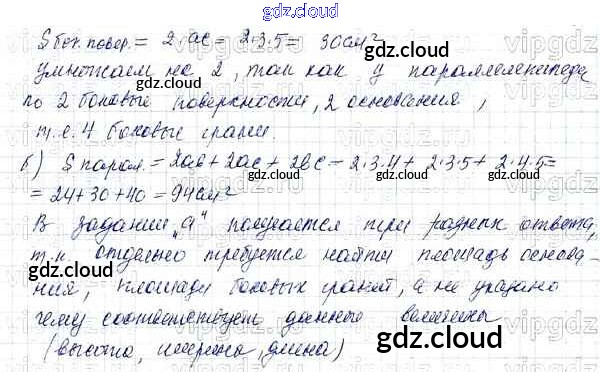 gdz.cloud
S бок. повер. = 2·ac = 2·3·5 = 30 см²
умножаем на 2, так как у параллелепипеда
по 2 боковые поверхности, 2 основания,
т.е. 4 боковые грани.
б) S парал. = 2ab + 2ac + 2bc = 2·3·4 + 2·3·5 + 2·4·5 =
= 24 + 30 + 40 = 94 см²
В задании „а" получается три разных ответа,
т.к. отдельно требуется найти площадь основа-
ния, площади боковых граней, а не указано
чему соответствует данные величины
(высота, ширина, длина)
gdz.cloud
gdz.cloud
gdz.cloud
gdz.cloud
gdz.cloud
gdz.cloud
gdz.cloud
gdz.cloud